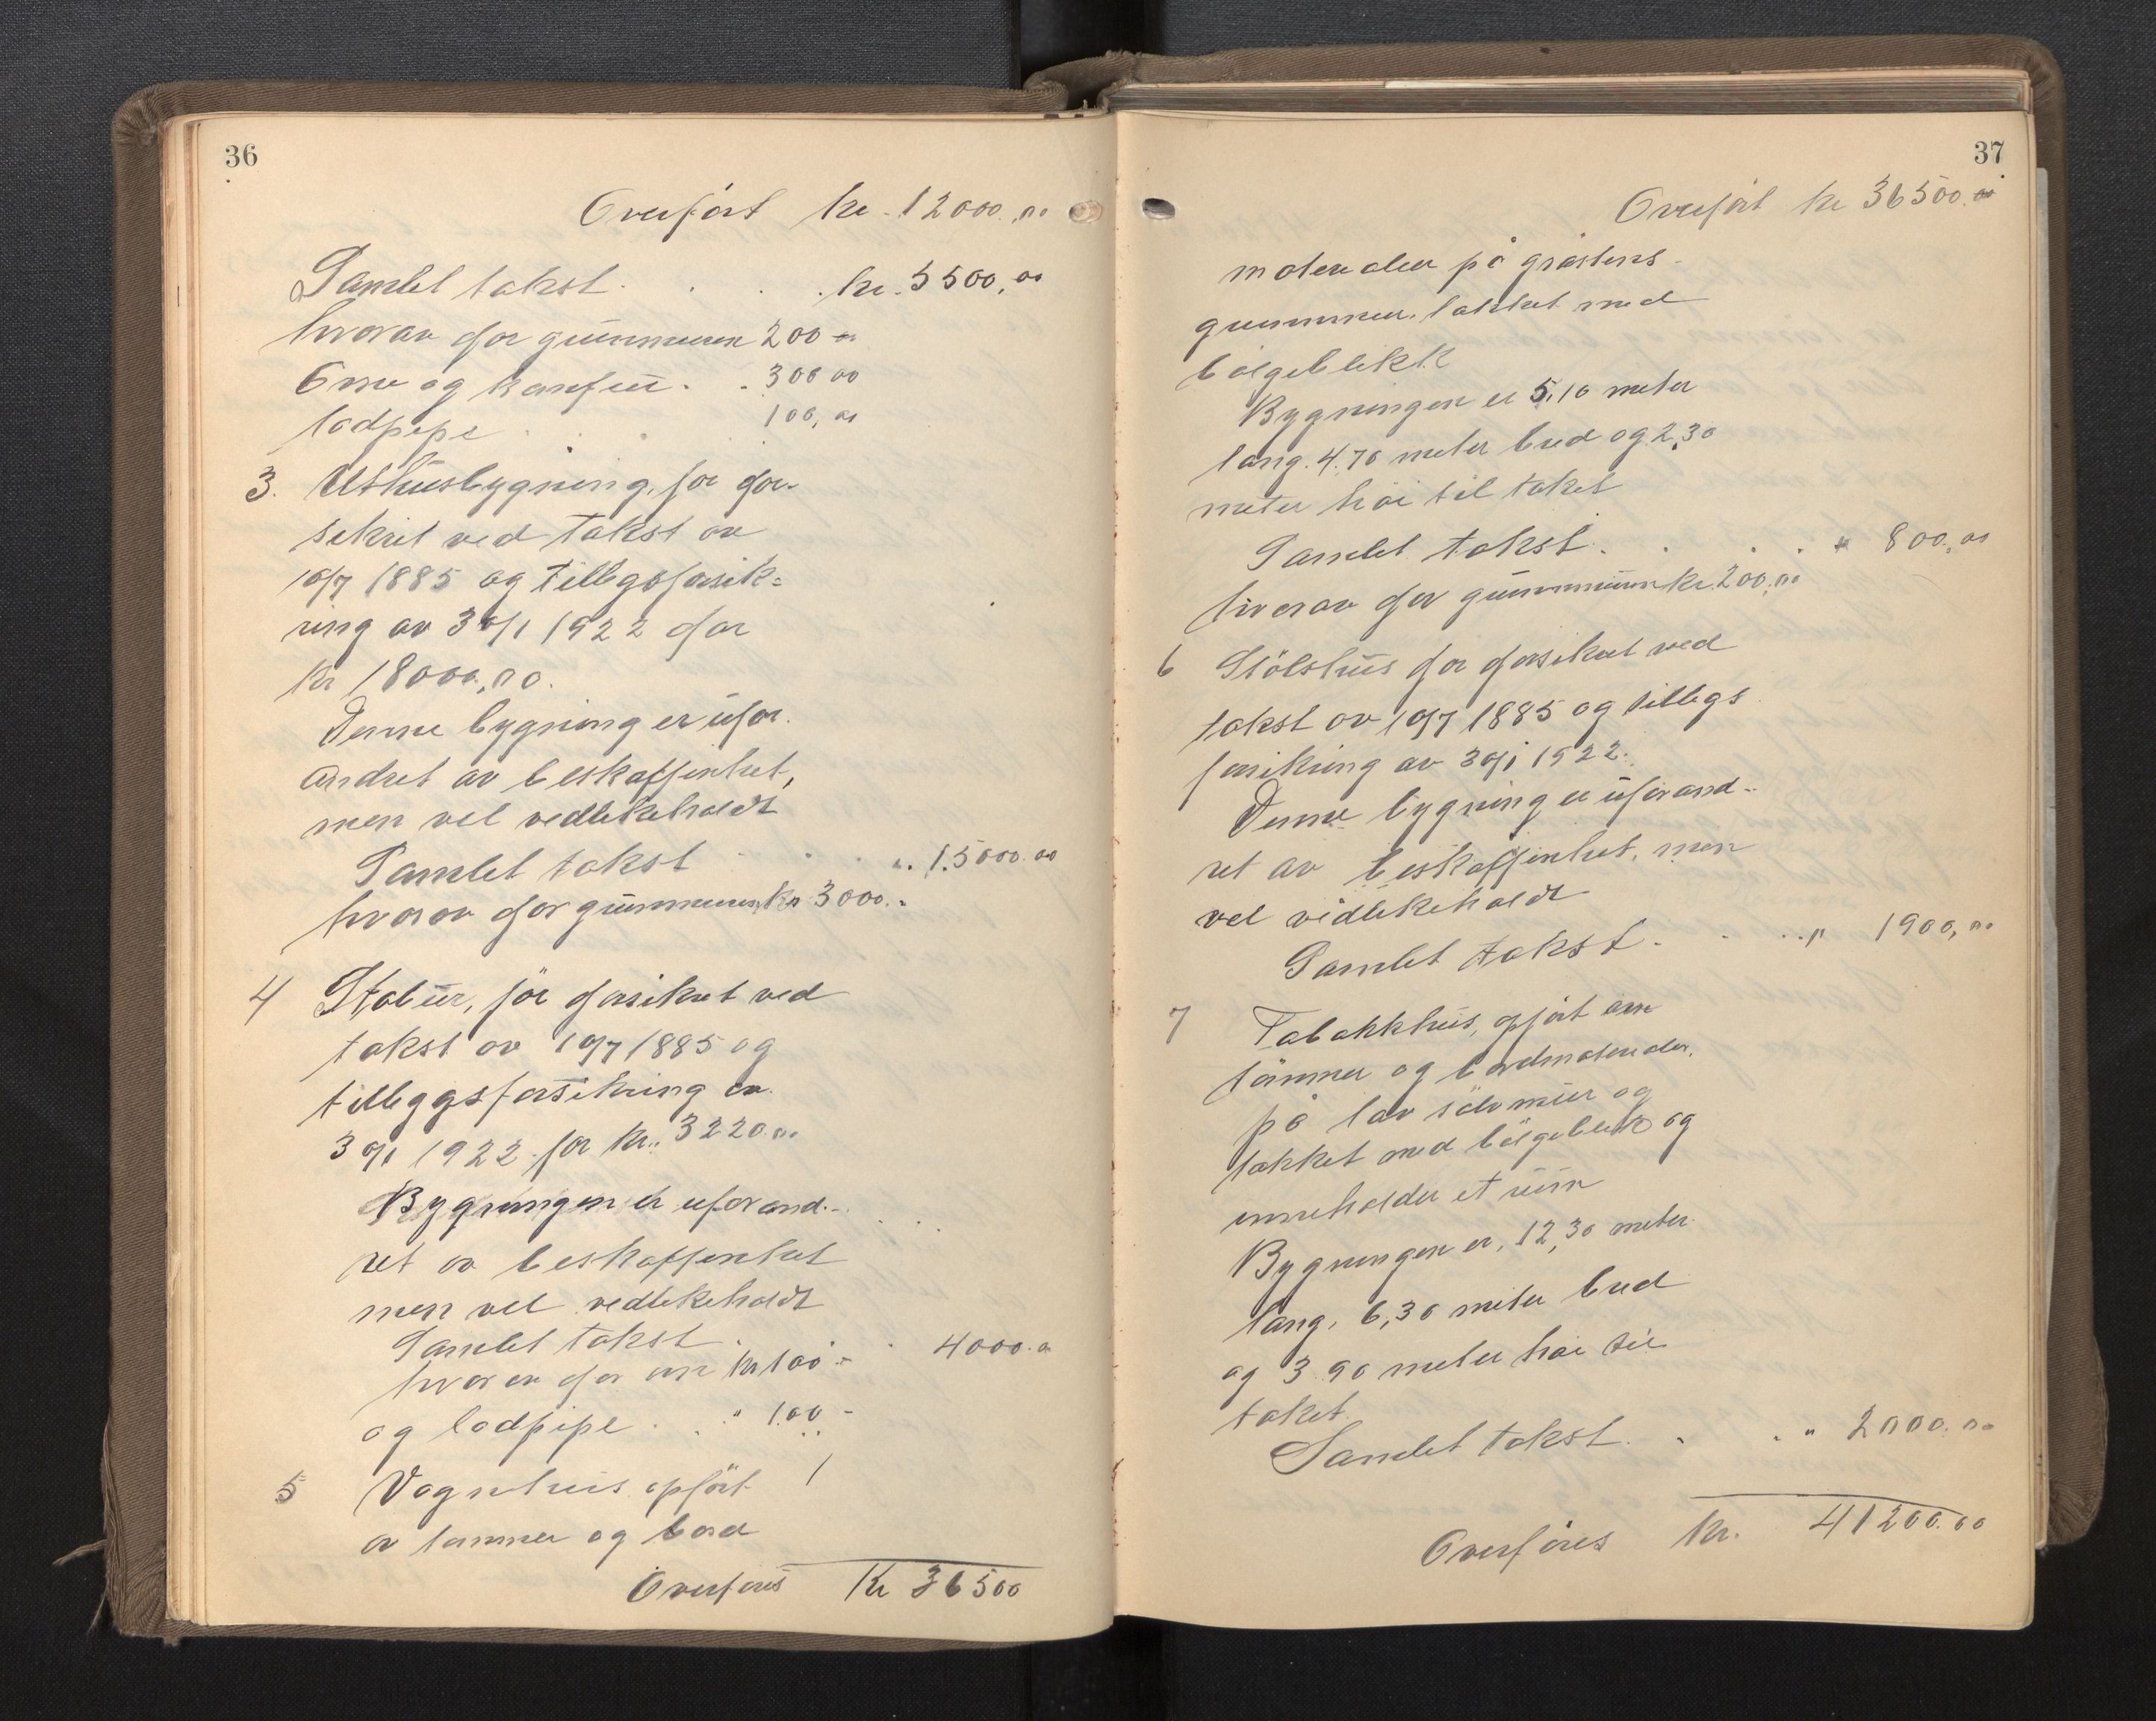 36
Overført kr. 12000,00
Samlet takst . . . kr. 5500,00
hvorav for grunnmuren 200 -
Ovne og komfur . . 300 00
lodpipe . . . 100,00
3. Uthusbygning, før for-
sikret ved takst av
10/7 1885 og tillegsforsik-
ring av 30/1 1922 for
kr 18000,00.
Denne bygning er ufor-
andret av beskaffenhet,
men vel vedlikeholdt
Samlet takst . . . „ 15000.00
hvorav for grunnmuren kr 3000.-
4 Stabur, før forsikret ved
takst av 10/7 1885 og
tilleggsforsikring av
30/1 1922 for kr. 3220.00
Bygningen er uforand-
ret av beskaffenhet
men vel vedlikeholdt
Samlet takst . . 4000.0
hvorav for ovn kr 100 -
og lodpipe . . " 100 -
5 Vognhus opført
av tømmer og bord
Overføres Kr 36500
37
Overført kr 36500.00
materialer på gråstens-
grunnmur, takket med
bølgeblikk
Bygningen er 5,10 meter
lang. 4.70 meter bred og 2,30
meter høi til taket
Samlet takst . . . . " 800,00
hvorav for grunnmuren kr. 200,00
6 Stølshus før forsikret ved
takst av 10/7 1885 og tillegs
forsikring av 30/1 1922.
Denne bygning er uforand-
ret av beskaffenhet, men
vel vedlikeholdt
Samlet takst . . . . " 1900,00
7 Tabakkhus, opført av
tømmer og bordmaterialer,
på lav mur og
takket med bølgeblikk og
inneholder et rum
Bygningen er, 12,30 meter
lang, 6,30 meter bred
og 3.90 meter høi til
taket.
Samlet takst . . . " 2000.00
Overføres kr. 41200.00